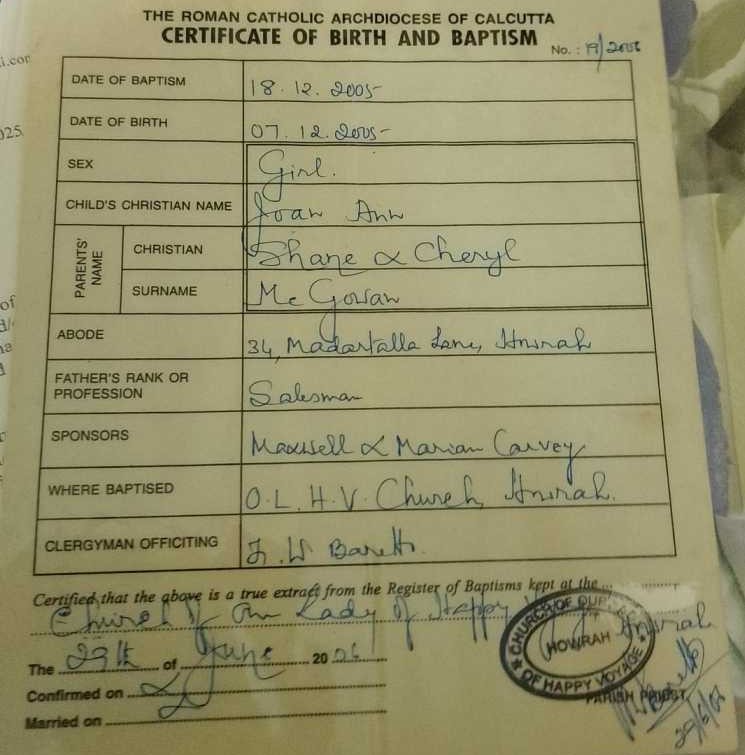 THE ROMAN CATHOLIC ARCHDIOCESE OF CALCUTTA
CERTIFICATE OF BIRTH AND BAPTISM
No. : 19/2006
DATE OF BAPTISM 18. 12. 2005
DATE OF BIRTH 07. 12. 2005
SEX Girl.
CHILD'S CHRISTIAN NAME Joan Ann
PARENTS' NAME
CHRISTIAN Shane & Cheryl
SURNAME Mc Gowan
ABODE 34, Madartalla Lane, Howrah
FATHER'S RANK OR PROFESSION Salesman
SPONSORS Maxwell & Marian Carvey
WHERE BAPTISED O.L.H.V. Church, Howrah.
CLERGYMAN OFFICITING W Baretto.
Certified that the above is a true extract from the Register of Baptisms kept at the ...
Church of Our Lady of Happy Howrah
The 29th of June 2006
Confirmed on
Married on
CHURCH OF OUR
HOWRAH
OF HAPPY VOYAGE
PARISH PRIEST